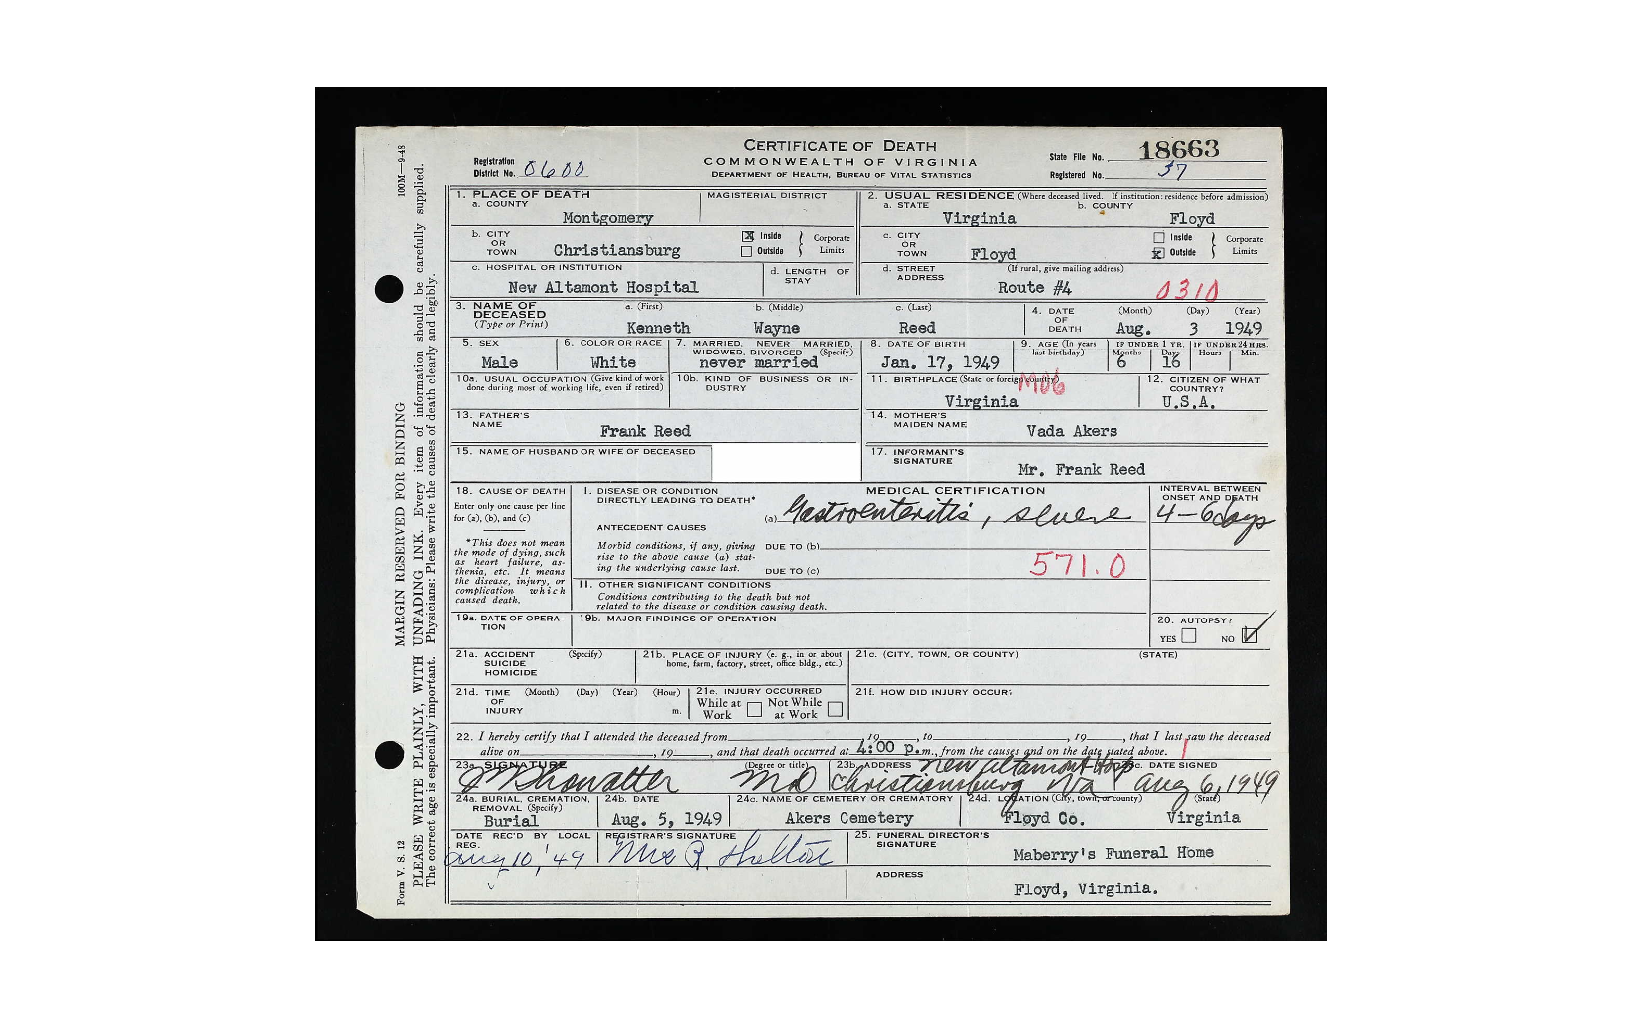 CERTIFICATE OF DEATH
COMMONWEALTH OF VIRGINIA
DEPARTMENT OF HEALTH, BUREAU OF VITAL STATISTICS
Registration District No. 0600
State File No. 18663
Registered No. 37
100M—9-48
MARGIN RESERVED FOR BINDING
PLEASE WRITE PLAINLY, WITH UNFADING INK. Every item of information should be carefully supplied.
The correct age is especially important. Physicians: Please write the causes of death clearly and legibly.
Form V. S. 12
1. PLACE OF DEATH
a. COUNTY
Montgomery
MAGISTERIAL DISTRICT
2. USUAL RESIDENCE (Where deceased lived. If institution: residence before admission)
a. STATE
Virginia
b. COUNTY
Floyd
b. CITY OR TOWN
Christiansburg
Inside
Outside
Corporate Limits
c. CITY OR TOWN
Floyd
Inside
Outside
Corporate Limits
c. HOSPITAL OR INSTITUTION
New Altamont Hospital
d. LENGTH OF STAY
d. STREET ADDRESS
(If rural, give mailing address)
Route #4
0310
3. NAME OF DECEASED
(Type or Print)
a. (First)
Kenneth
b. (Middle)
Wayne
c. (Last)
Reed
4. DATE OF DEATH
(Month) (Day) (Year)
Aug. 3 1949
5. SEX
Male
6. COLOR OR RACE
White
7. MARRIED, NEVER MARRIED, WIDOWED, DIVORCED (Specify)
never married
8. DATE OF BIRTH
Jan. 17, 1949
9. AGE (In years last birthday)
IF UNDER 1 YR.
Months Days
6 16
IF UNDER 24 HRS.
Hours Min.
10a. USUAL OCCUPATION (Give kind of work done during most of working life, even if retired)
10b. KIND OF BUSINESS OR INDUSTRY
11. BIRTHPLACE (State or foreign country)
Virginia
12. CITIZEN OF WHAT COUNTRY?
U.S.A.
13. FATHER'S NAME
Frank Reed
14. MOTHER'S MAIDEN NAME
Vada Akers
15. NAME OF HUSBAND OR WIFE OF DECEASED
17. INFORMANT'S SIGNATURE
Mr. Frank Reed
18. CAUSE OF DEATH
Enter only one cause per line for (a), (b), and (c)
*This does not mean the mode of dying, such as heart failure, asthenia, etc. It means the disease, injury, or complication which caused death.
MEDICAL CERTIFICATION
I. DISEASE OR CONDITION DIRECTLY LEADING TO DEATH*
(a) Gastroenteritis, severe
INTERVAL BETWEEN ONSET AND DEATH
4-6 days
ANTECEDENT CAUSES
Morbid conditions, if any, giving rise to the above cause (a) stating the underlying cause last.
DUE TO (b)
DUE TO (c)
571.0
II. OTHER SIGNIFICANT CONDITIONS
Conditions contributing to the death but not related to the disease or condition causing death.
19a. DATE OF OPERATION
19b. MAJOR FINDINGS OF OPERATION
20. AUTOPSY?
YES NO
21a. ACCIDENT SUICIDE HOMICIDE
(Specify)
21b. PLACE OF INJURY (e. g., in or about home, farm, factory, street, office bldg., etc.)
21c. (CITY, TOWN, OR COUNTY)
(STATE)
21d. TIME OF INJURY
(Month) (Day) (Year) (Hour)
m.
21e. INJURY OCCURRED
While at Work
Not While at Work
21f. HOW DID INJURY OCCUR?
22. I hereby certify that I attended the deceased from , 19 , to , 19 , that I last saw the deceased
alive on , 19 , and that death occurred at 4:00 p.m., from the causes and on the date stated above.
23a. SIGNATURE
Showalter
(Degree or title)
MD
23b. ADDRESS
New Altamont Hosp
Christiansburg Va
23c. DATE SIGNED
Aug 6, 1949
24a. BURIAL, CREMATION, REMOVAL (Specify)
Burial
24b. DATE
Aug. 5, 1949
24c. NAME OF CEMETERY OR CREMATORY
Akers Cemetery
24d. LOCATION (City, town, or county)
Floyd Co.
(State)
Virginia
DATE REC'D BY LOCAL REG.
Aug 10, '49
REGISTRAR'S SIGNATURE
25. FUNERAL DIRECTOR'S SIGNATURE
Maberry's Funeral Home
ADDRESS
Floyd, Virginia.